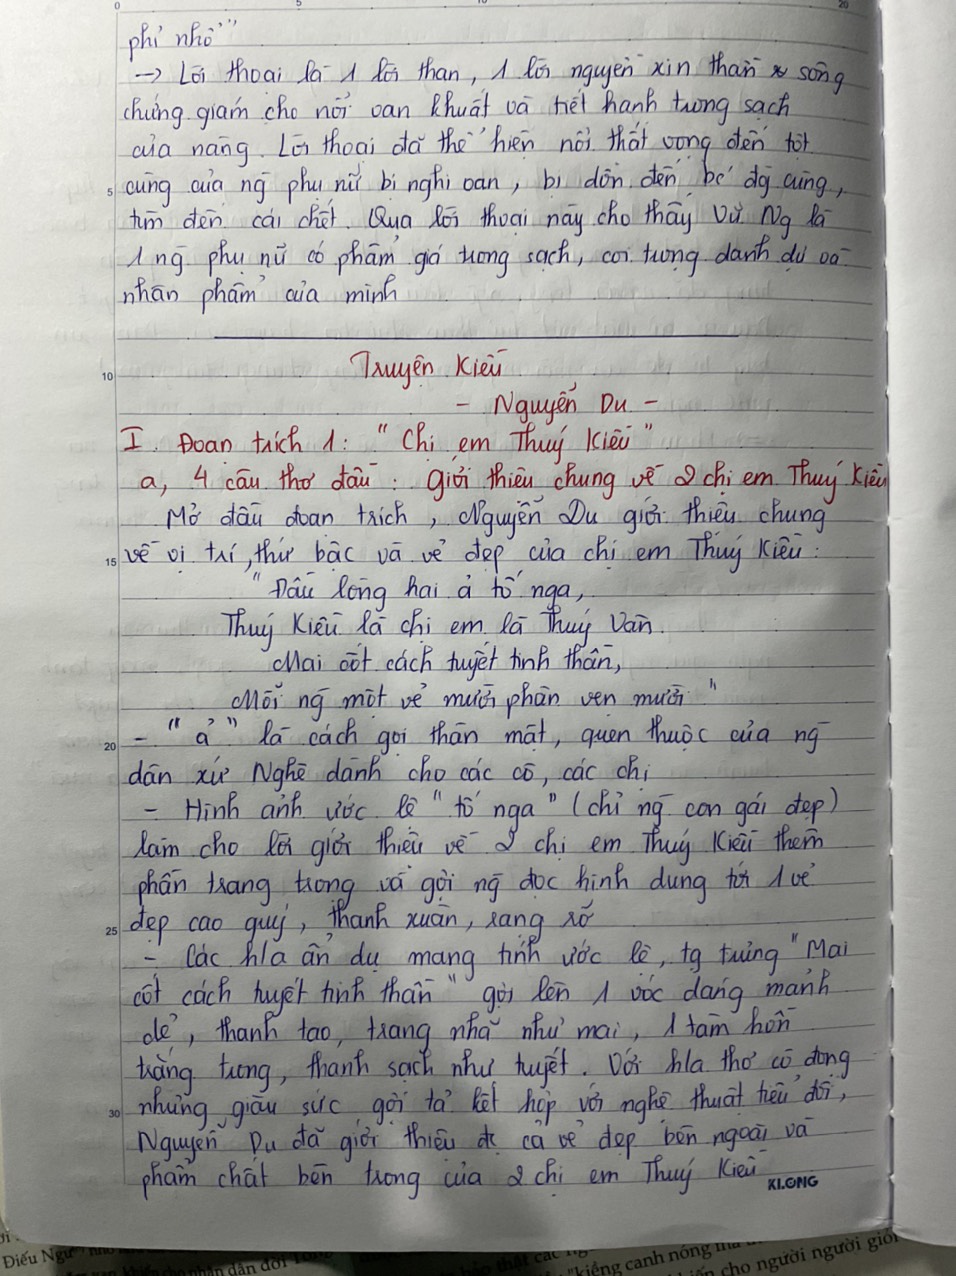 0 5 10 20
phỉ nhổ"
→ Lời thoại là 1 lời than, 1 lời nguyền xin thần sông
chứng giám cho nỗi oan khuất và tiết hạnh trong sạch
của nàng. Lời thoại đã thể hiện nỗi thất vọng đến tột
5 cùng của ng phụ nữ bị nghi oan, bị dồn đến bc đg cùng,
tìm đến cái chết. Qua lời thoại này cho thấy Vũ Ng là
1 ng phụ nữ có phẩm giá trong sạch, coi trọng danh dự và
nhân phẩm của mình
10 Truyện Kiều
- Nguyễn Du -
I. Đoạn trích 1: "Chị em Thuý Kiều"
a, 4 câu thơ đầu: giới thiệu chung về 2 chị em Thuý Kiều
Mở đầu đoạn trích, Nguyễn Du giới thiệu chung
15 về vị trí, thứ bậc và vẻ đẹp của chị em Thuý Kiều:
"Đầu lòng hai ả tố nga,
Thuý Kiều là chị em là Thuý Vân.
Mai cốt cách tuyết tinh thần,
Mỗi ng một vẻ mười phân vẹn mười"
20 - "ả" là cách gọi thân mật, quen thuộc của ng
dân xứ Nghệ dành cho các cô, các chị
- Hình ảnh ước lệ "tố nga" (chỉ ng con gái đẹp)
làm cho lời giới thiệu về 2 chị em Thuý Kiều thêm
phần trang trọng và gợi ng đọc hình dung tới 1 vẻ
25 đẹp cao quý, thanh xuân, rạng rỡ
- Các h/a ẩn dụ mang tính ước lệ, tg trưng "Mai
cốt cách tuyết tinh thần" gợi lên 1 vóc dáng mảnh
dẻ, thanh tao, trang nhã như mai, 1 tâm hồn
trắng trong, thanh sạch như tuyết. Với h/a thơ cô đọng
30 nhưng giàu sức gợi tả kết hợp với nghệ thuật tiểu đối,
Nguyễn Du đã giới thiệu đc cả vẻ đẹp bên ngoài và
phẩm chất bên trong của 2 chị em Thuý Kiều
KLONG
Điếu Ngư
dân đời
"kiềng canh nóng
cho người người giới